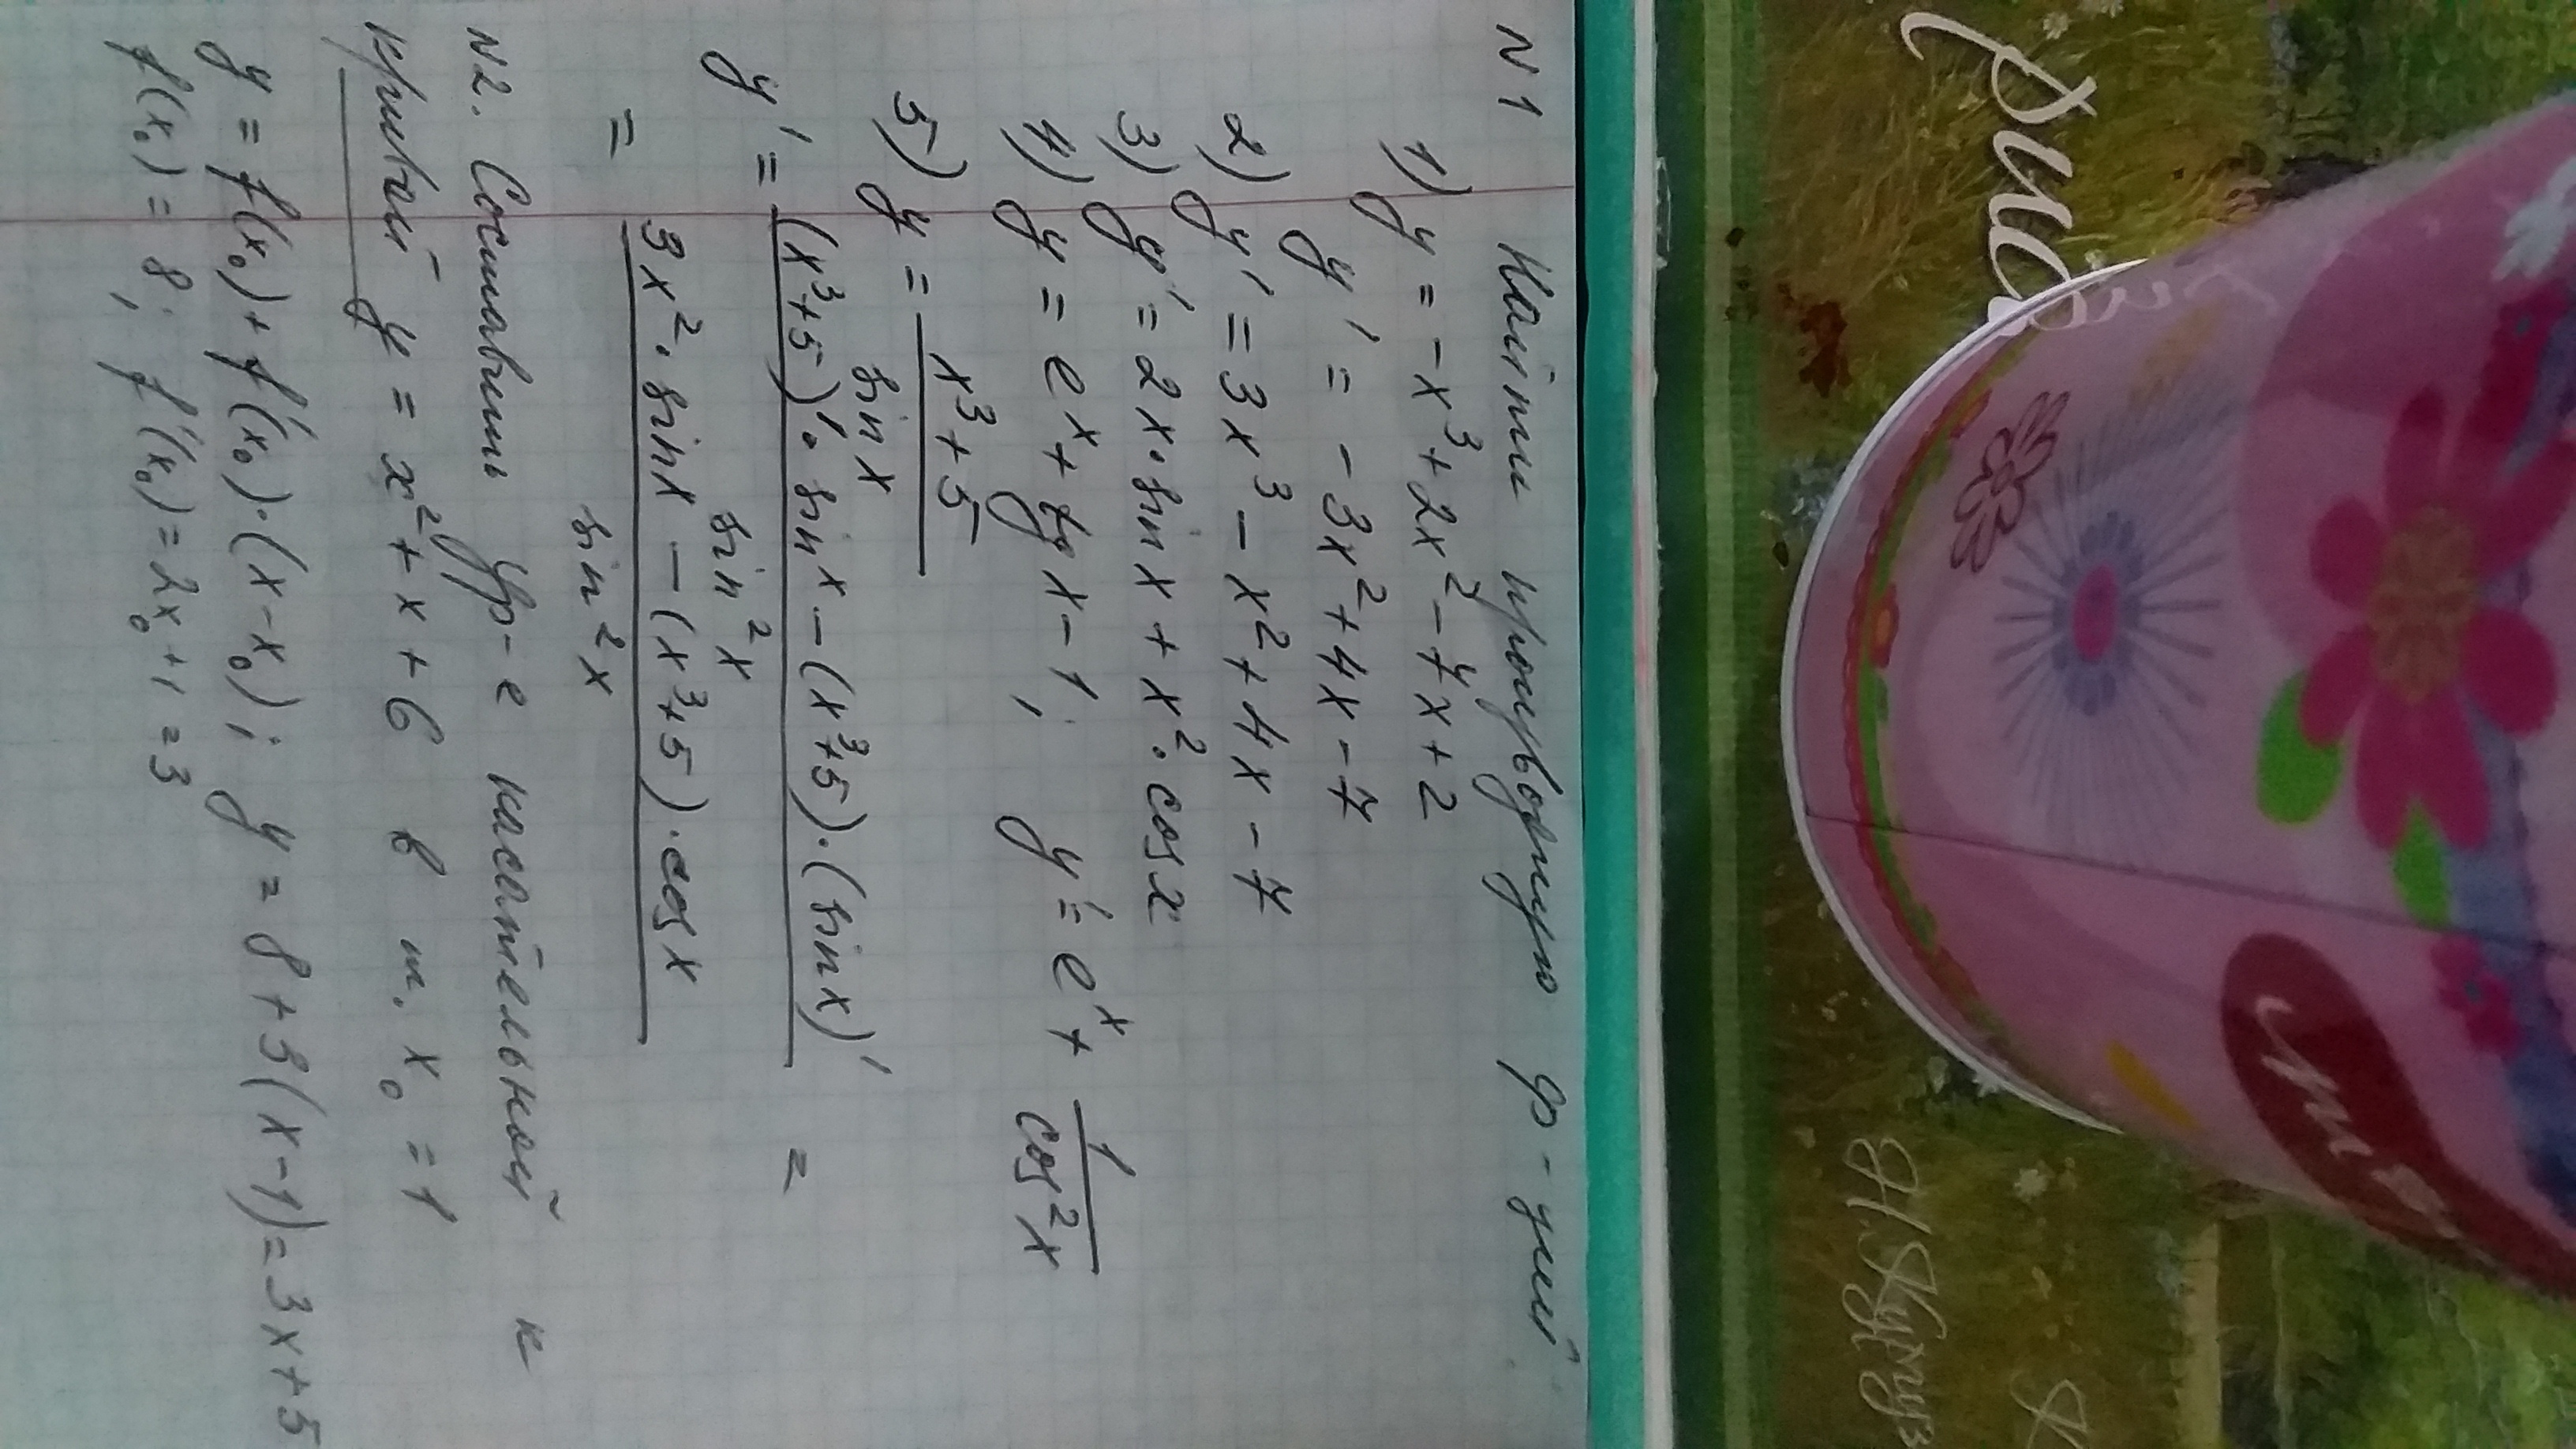 N1 Найти производную ф-ций
1) y = -x³ + 2x² - 7x + 2
y' = -3x² + 4x - 7
2) y' = 3x³ - x² + 4x - 7
3) y' = 2x · sin x + x² · cos x
4) y = eˣ + tg x - 1; y' = eˣ + 1/cos² x
5) y = (x³ + 5)/sin x
y' = ((x³+5)' · sin x - (x³+5) · (sin x)')/sin² x =
= (3x² · sin x - (x³+5) · cos x)/sin² x
N2. Составить ур-е касательной к
кривой y = x² + x + 6 в т. x₀ = 1
y = f(x₀) + f'(x₀) · (x - x₀); y = 8 + 3(x - 1) = 3x + 5
f(x₀) = 8; f'(x₀) = 2x₀ + 1 = 3